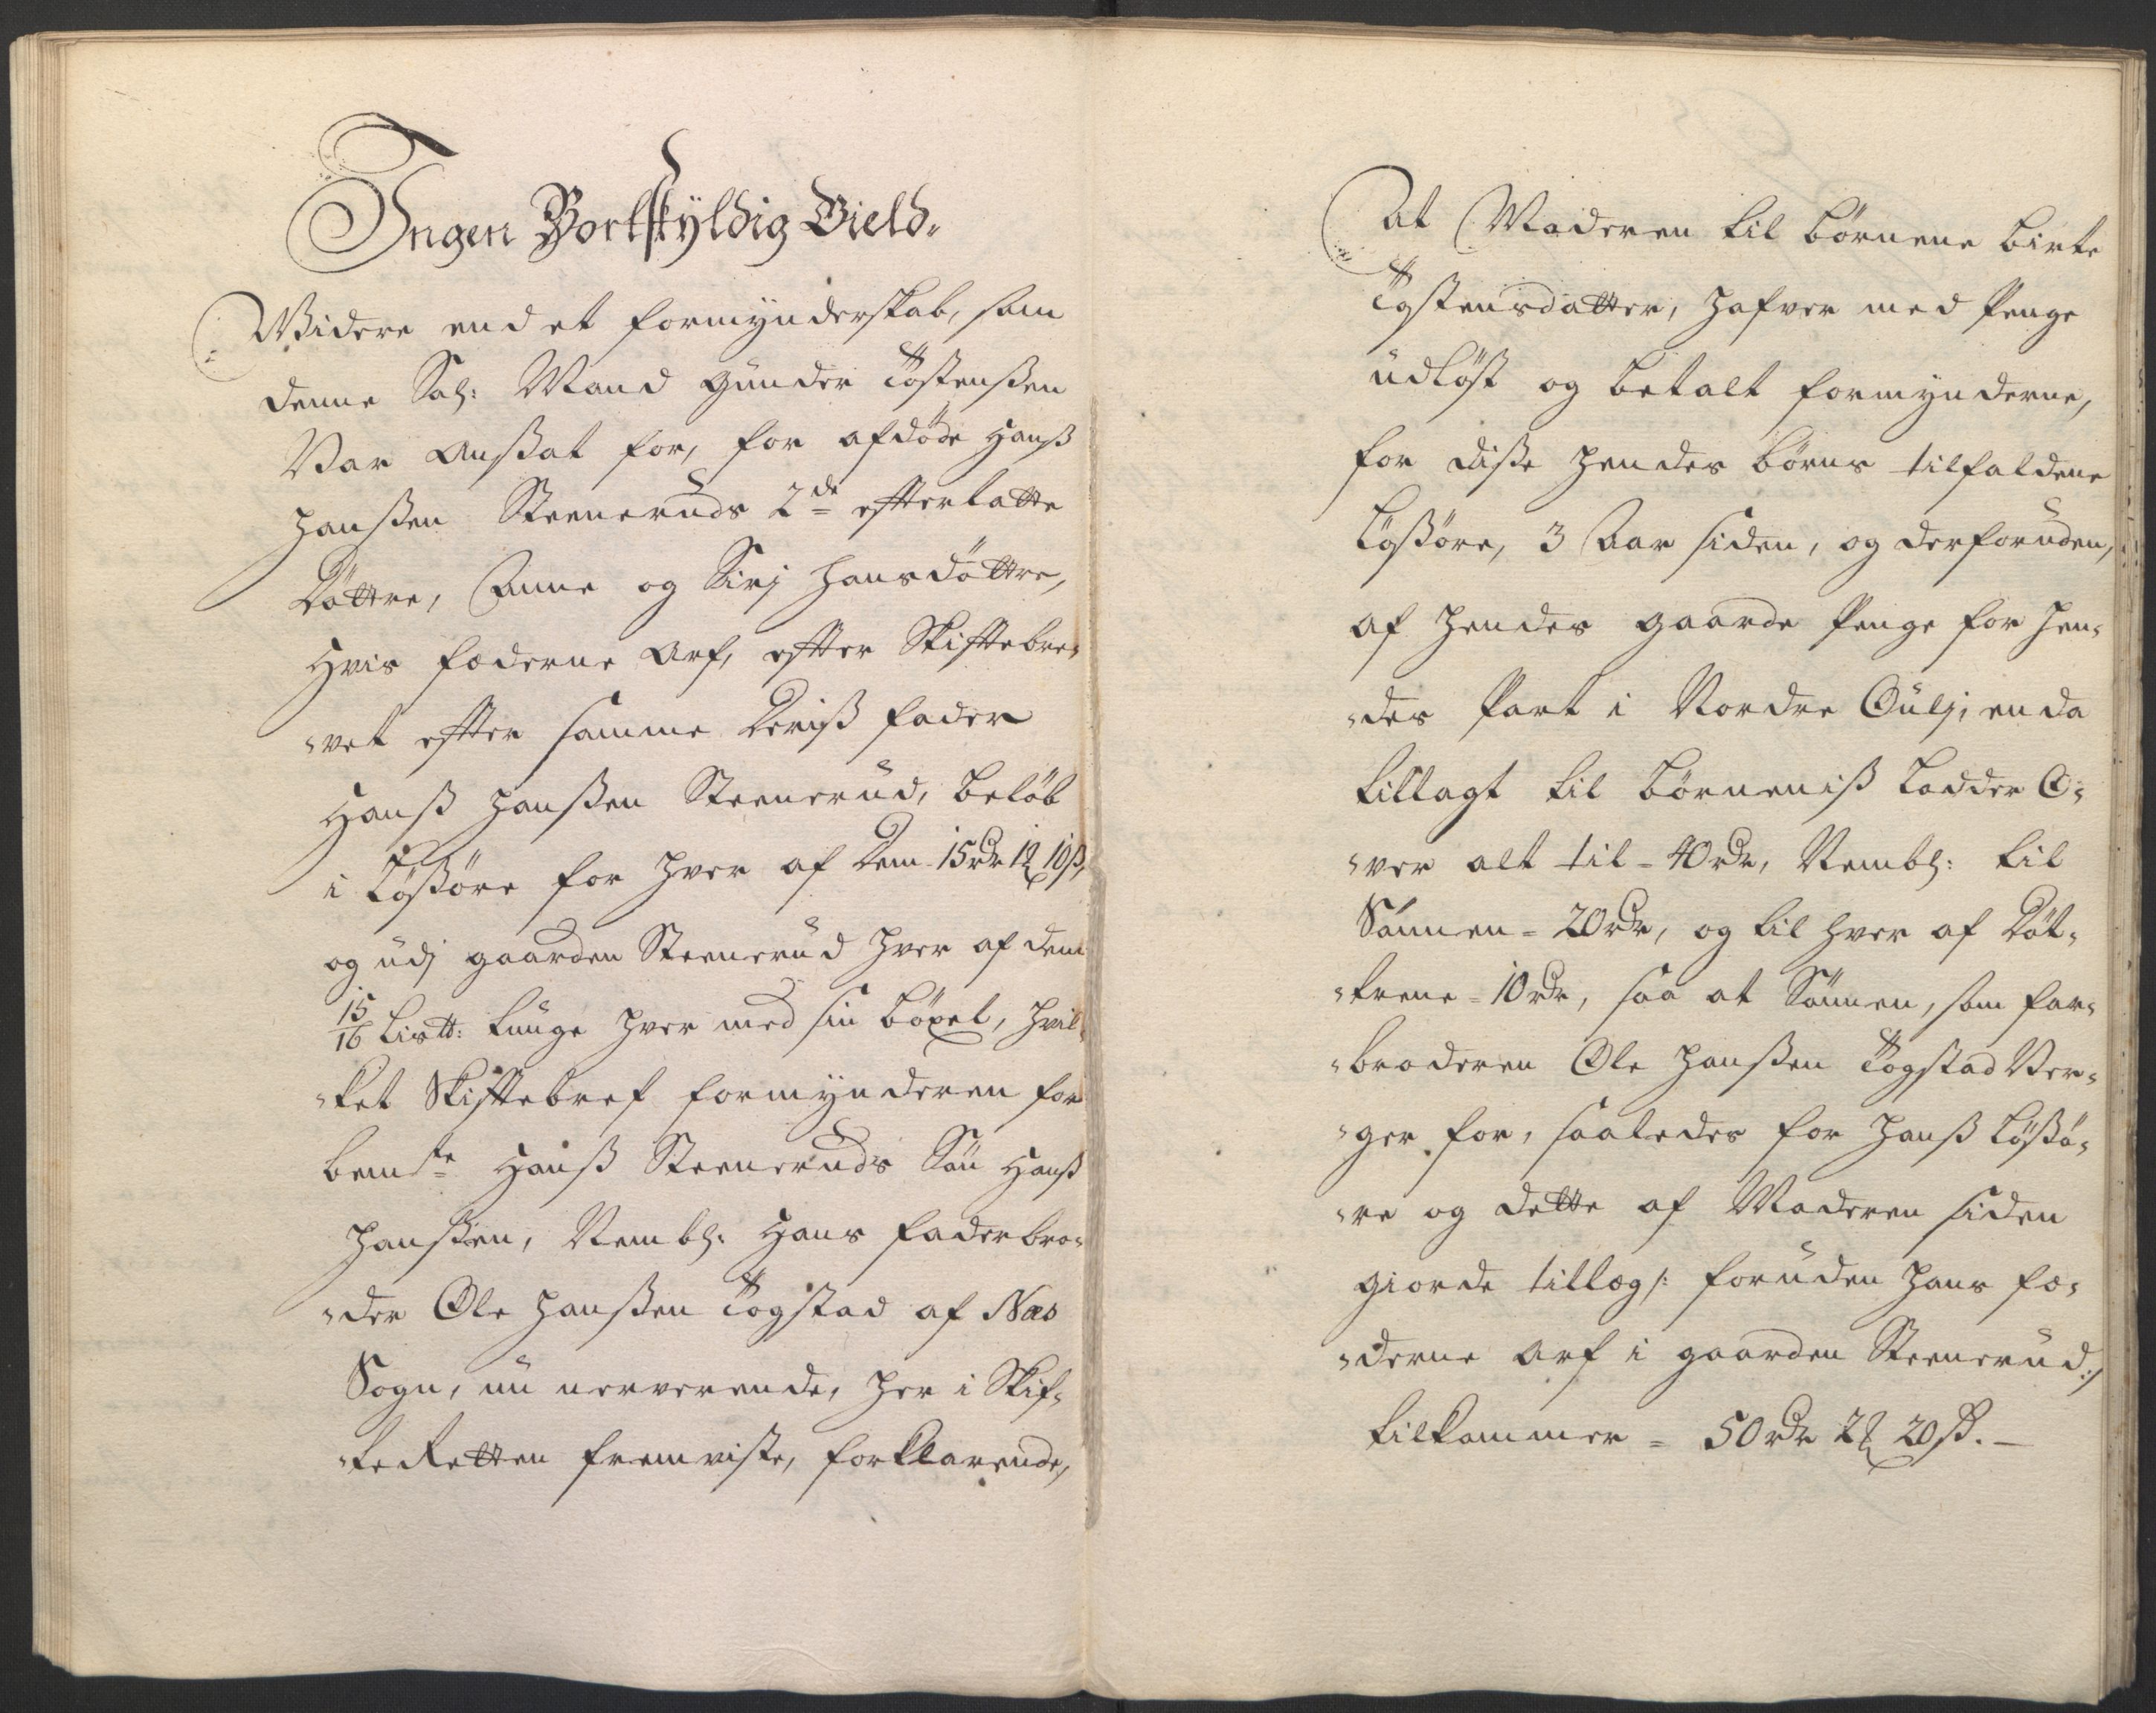 Ingen Bortskÿldig Gield„
Widere end et formÿnderskab, som
denne Sal: Mand Gunder Töstenßen
War Anßat for, for afdöde Hanß
Hanßen Steeneruds 2de efterlatte
Döttre, Anne og Siri Hansdöttre,
Hvis foderne Arf, efter Skiftebre„
„vet efter samme deriß fader
Hanß Hanßen Steenerud, belöb
i lößöre for hver af dem 15 rdr 1 ort 10 ß,
og udi gaarden Steenerud hver af dem
15/16 Lis℔: tunge hver med sin böxel, hvil„
„ket Skiftebref formÿnderen for
bemte Hanß Steeneruds Sön Hanß
Hanßen, Nembl: Hans faderbro„
„der Ole Hanßen Togstad af Næs
Sogn, nu nerverende, her i Skif„
„te Retten fremviste, forklarende,
At Moderen til börnene birte
Töstensdatter, hafver med Penge
udlöst og betalt formÿnderne,
for diße hendes börns tilfaldene
lößöre, 3 Aar siden, og derforuden,
af hendes gaarde Penge for hen„
„des Part i Nordre Gulj, enda
tillagt til börneniß lodder O„
„ver alt til = 40 rdr, Nembl: til
Sönnen = 20 rdr, og til hver af Döt„
„trene = 10 rdr, saa at Sönnen, som far„
„broderen Ole Hanßen Togstad Ver„
„ger for, saaledes for hanß lößö„
„re og dette af Moderen siden
giorde tillæg /: foruden hans fo„
„derne arf i gaarden Steenerud :/
tilkommer = 50 rdr 2 ort 20 ß. —